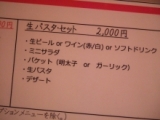 生パスタ・セット 2,000円
・生ビール or ワイン(赤/白) or ソフトドリンク
・ミニサラダ
・バケット (明太子 or ガーリック)
・生パスタ
・デザート